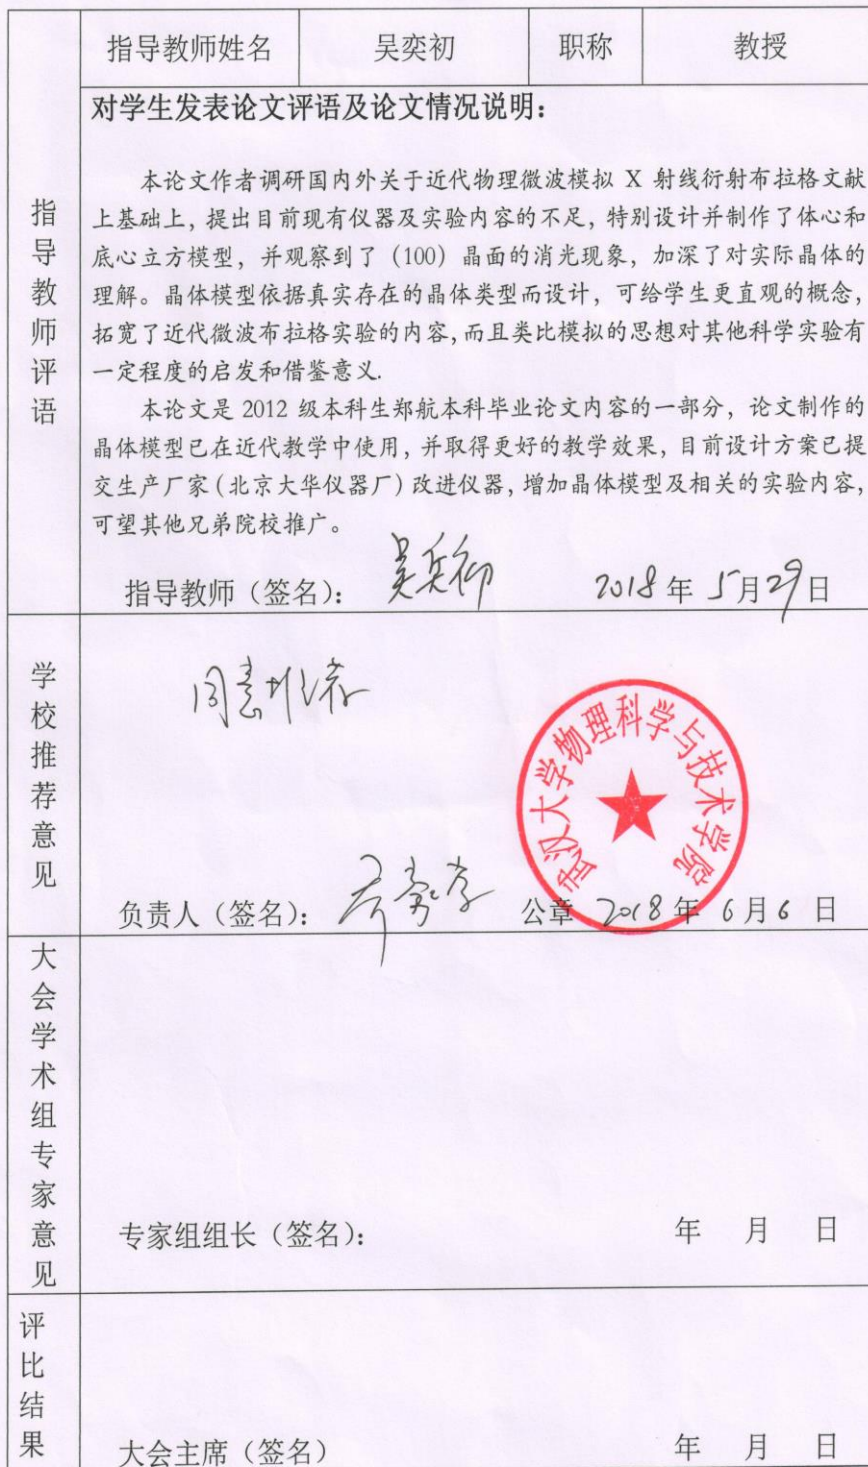 指导教师姓名 吴奕初 职称 教授
指导教师评语
对学生发表论文评语及论文情况说明：
本论文作者调研国内外关于近代物理微波模拟 X 射线衍射布拉格文献
上基础上，提出目前现有仪器及实验内容的不足，特别设计并制作了体心和
底心立方模型，并观察到了（100）晶面的消光现象，加深了对实际晶体的
理解。晶体模型依据真实存在的晶体类型而设计，可给学生更直观的概念，
拓宽了近代微波布拉格实验的内容，而且类比模拟的思想对其他科学实验有
一定程度的启发和借鉴意义.
本论文是 2012 级本科生郑航本科毕业论文内容的一部分，论文制作的
晶体模型已在近代教学中使用，并取得更好的教学效果，目前设计方案已提
交生产厂家（北京大华仪器厂）改进仪器，增加晶体模型及相关的实验内容，
可望其他兄弟院校推广。
指导教师（签名）： 吴奕初 2018 年 5 月 29 日
学校推荐意见
同意推荐
武汉大学物理科学与技术学院
负责人（签名）： 公章 2018 年 6 月 6 日
大会学术组专家意见
专家组组长（签名）： 年 月 日
评比结果
大会主席（签名） 年 月 日